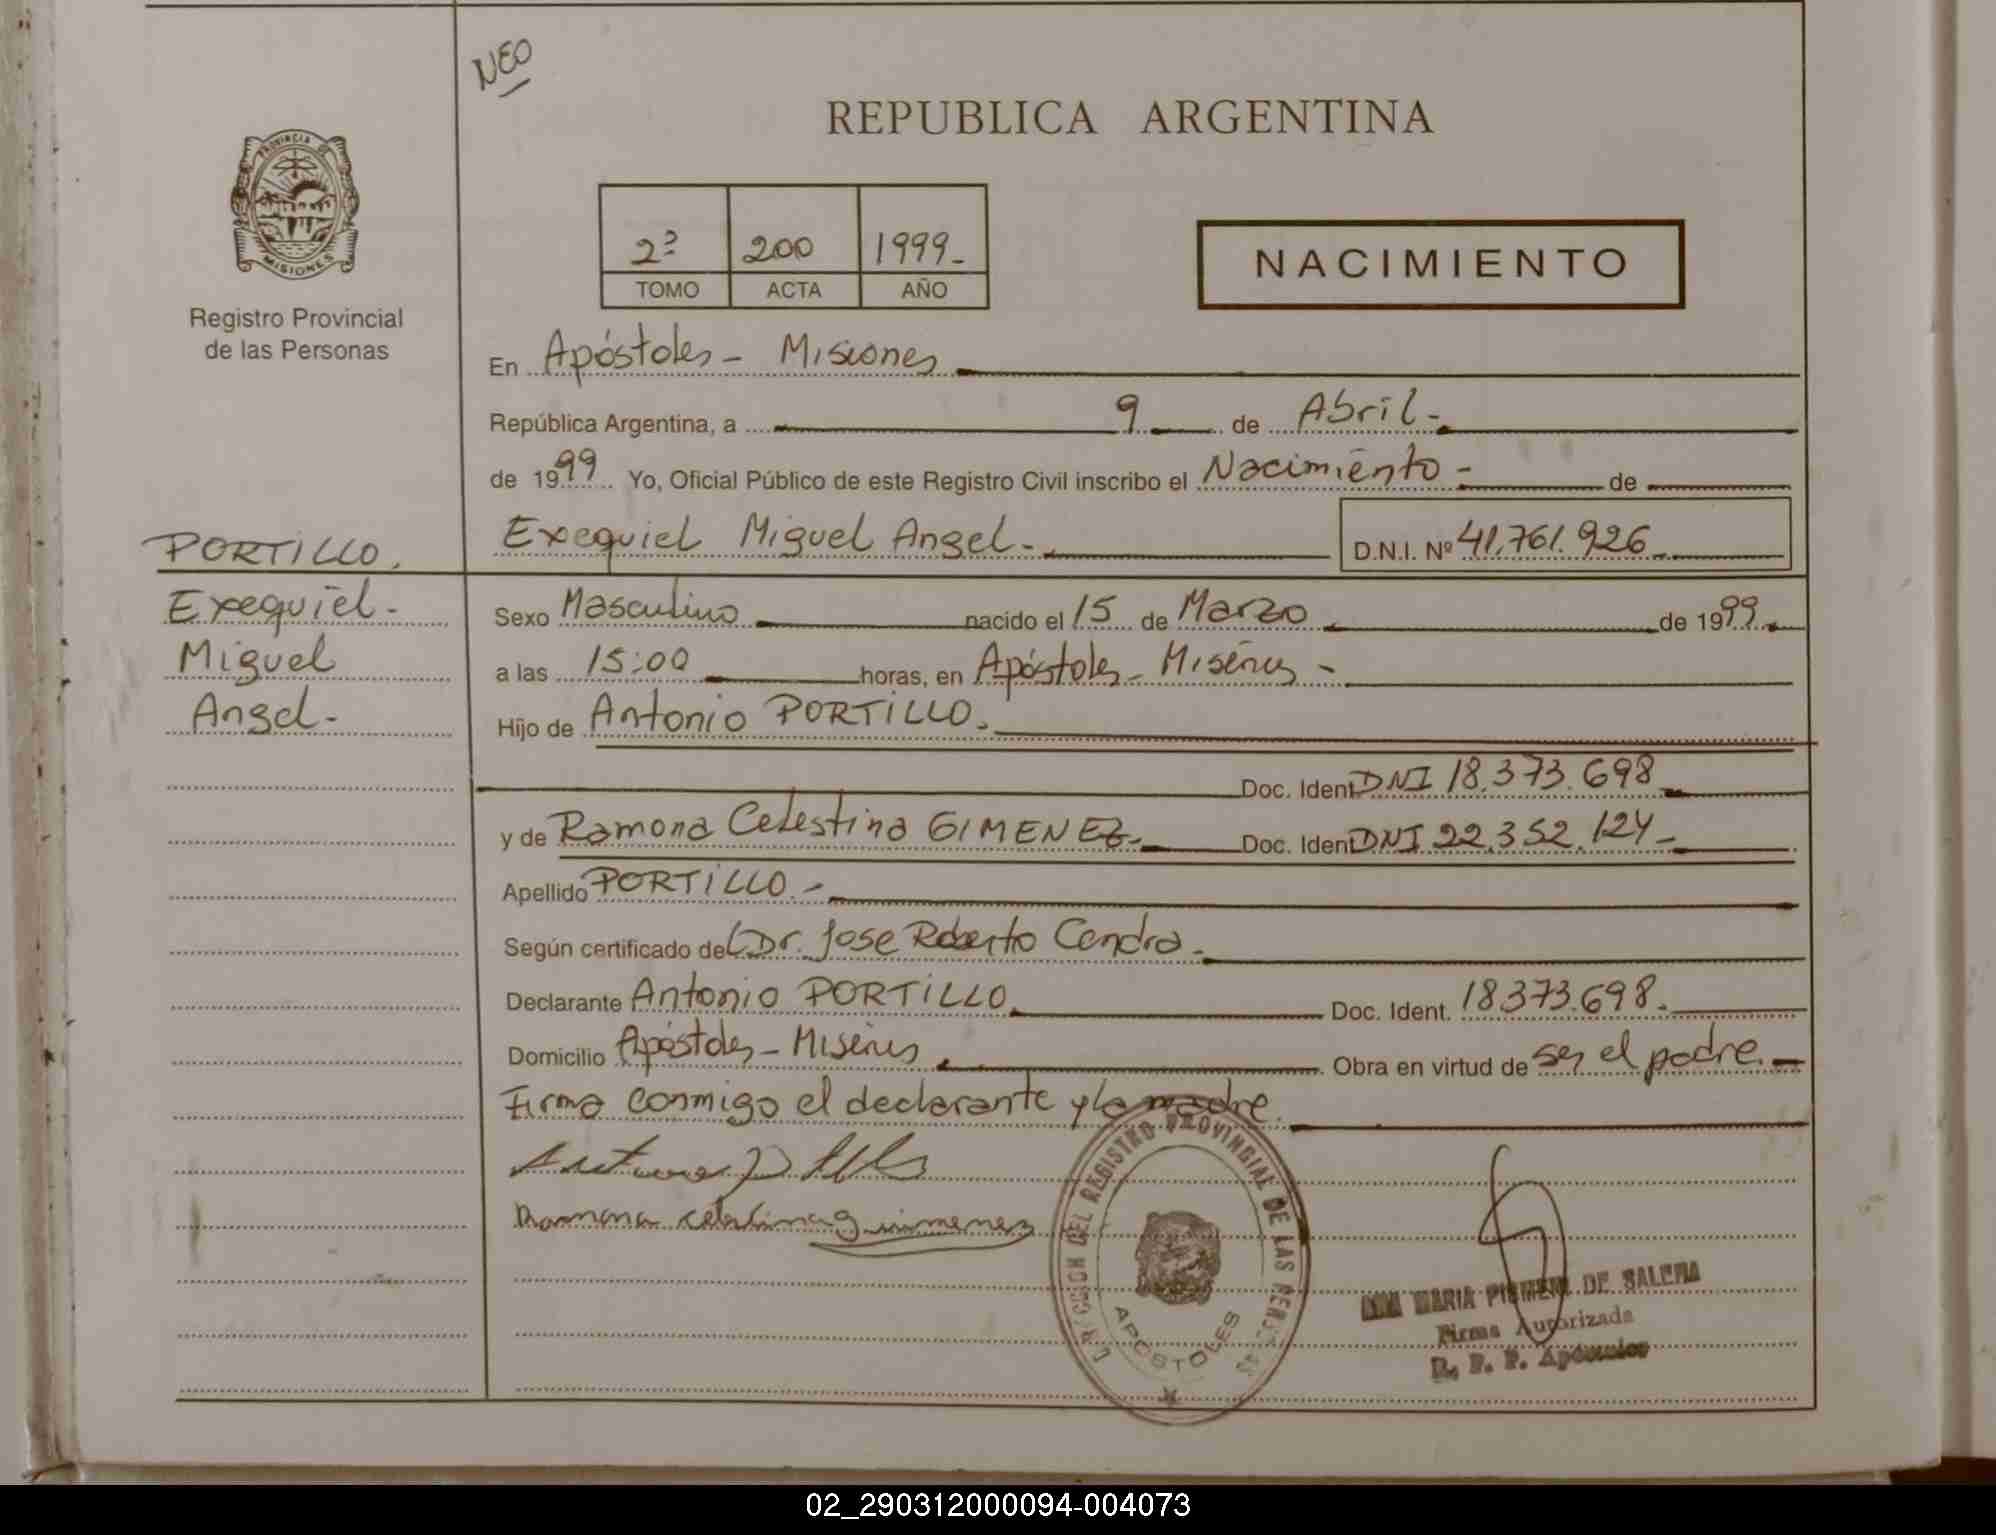 NEO
REPUBLICA ARGENTINA
PROVINCIA DE
MISIONES
Registro Provincial
de las Personas
2º 200 1999-
TOMO ACTA AÑO
NACIMIENTO
En Apóstoles - Misiones
República Argentina, a 9 de Abril-
de 1999 Yo, Oficial Público de este Registro Civil inscribo el Nacimiento - de
Exequiel Miguel Angel- D.N.I. Nº 41.761.926
PORTILLO.
Exequiel-
Miguel
Angel-
Sexo Masculino nacido el 15 de Marzo de 1999
a las 15:00 horas, en Apóstoles - Misiones -
Hijo de Antonio PORTILLO.
Doc. Ident DNI 18.373.698
y de Ramona Celestina GIMENEZ- Doc. Ident DNI 22.352.124-
Apellido PORTILLO.-
Según certificado del Dr. Jose Roberto Cendra.
Declarante Antonio PORTILLO Doc. Ident. 18373.698.
Domicilio Apóstoles - Misiones Obra en virtud de ser el padre.
Firma conmigo el declarante y la madre.
Ramona celestina gimenez
DIRECCION DEL REGISTRO PROVINCIAL DE LAS PERSONAS
APOSTOLES
MARIA DE SALERA
Firma Autorizada
R. P. P. Apóstoles
02_290312000094-004073